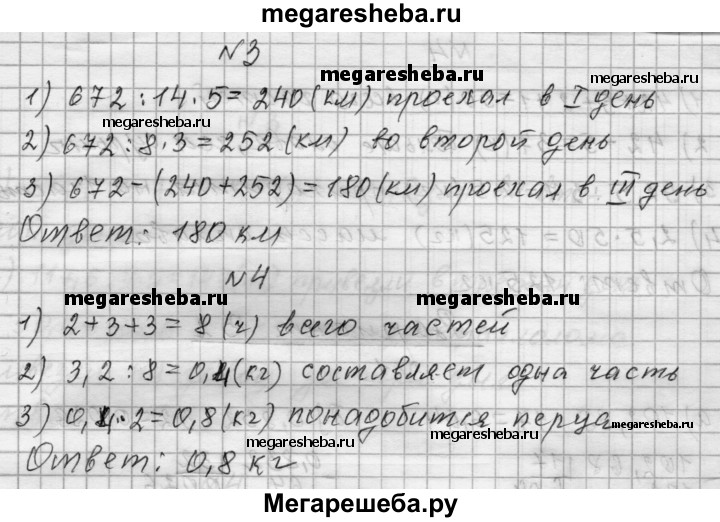 megaresheba.ru
N3
megaresheba.ru
1) 672 : 14 · 5 = 240 (км) проехал в I день
megaresheba.ru
2) 672 : 8 · 3 = 252 (км) во второй день
3) 672 - (240 + 252) = 180 (км) проехал в III день
Ответ: 180 км
N4
megaresheba.ru
megaresheba.ru
1) 2 + 3 + 3 = 8 (ч) всего частей
2) 3,2 : 8 = 0,4 (кг) составляет одна часть
3) 0,4 · 2 = 0,8 (кг) понадобится перца
megaresheba.ru
megaresheba.ru
megaresheba.ru
Ответ: 0,8 кг
Мегарешеба.ру